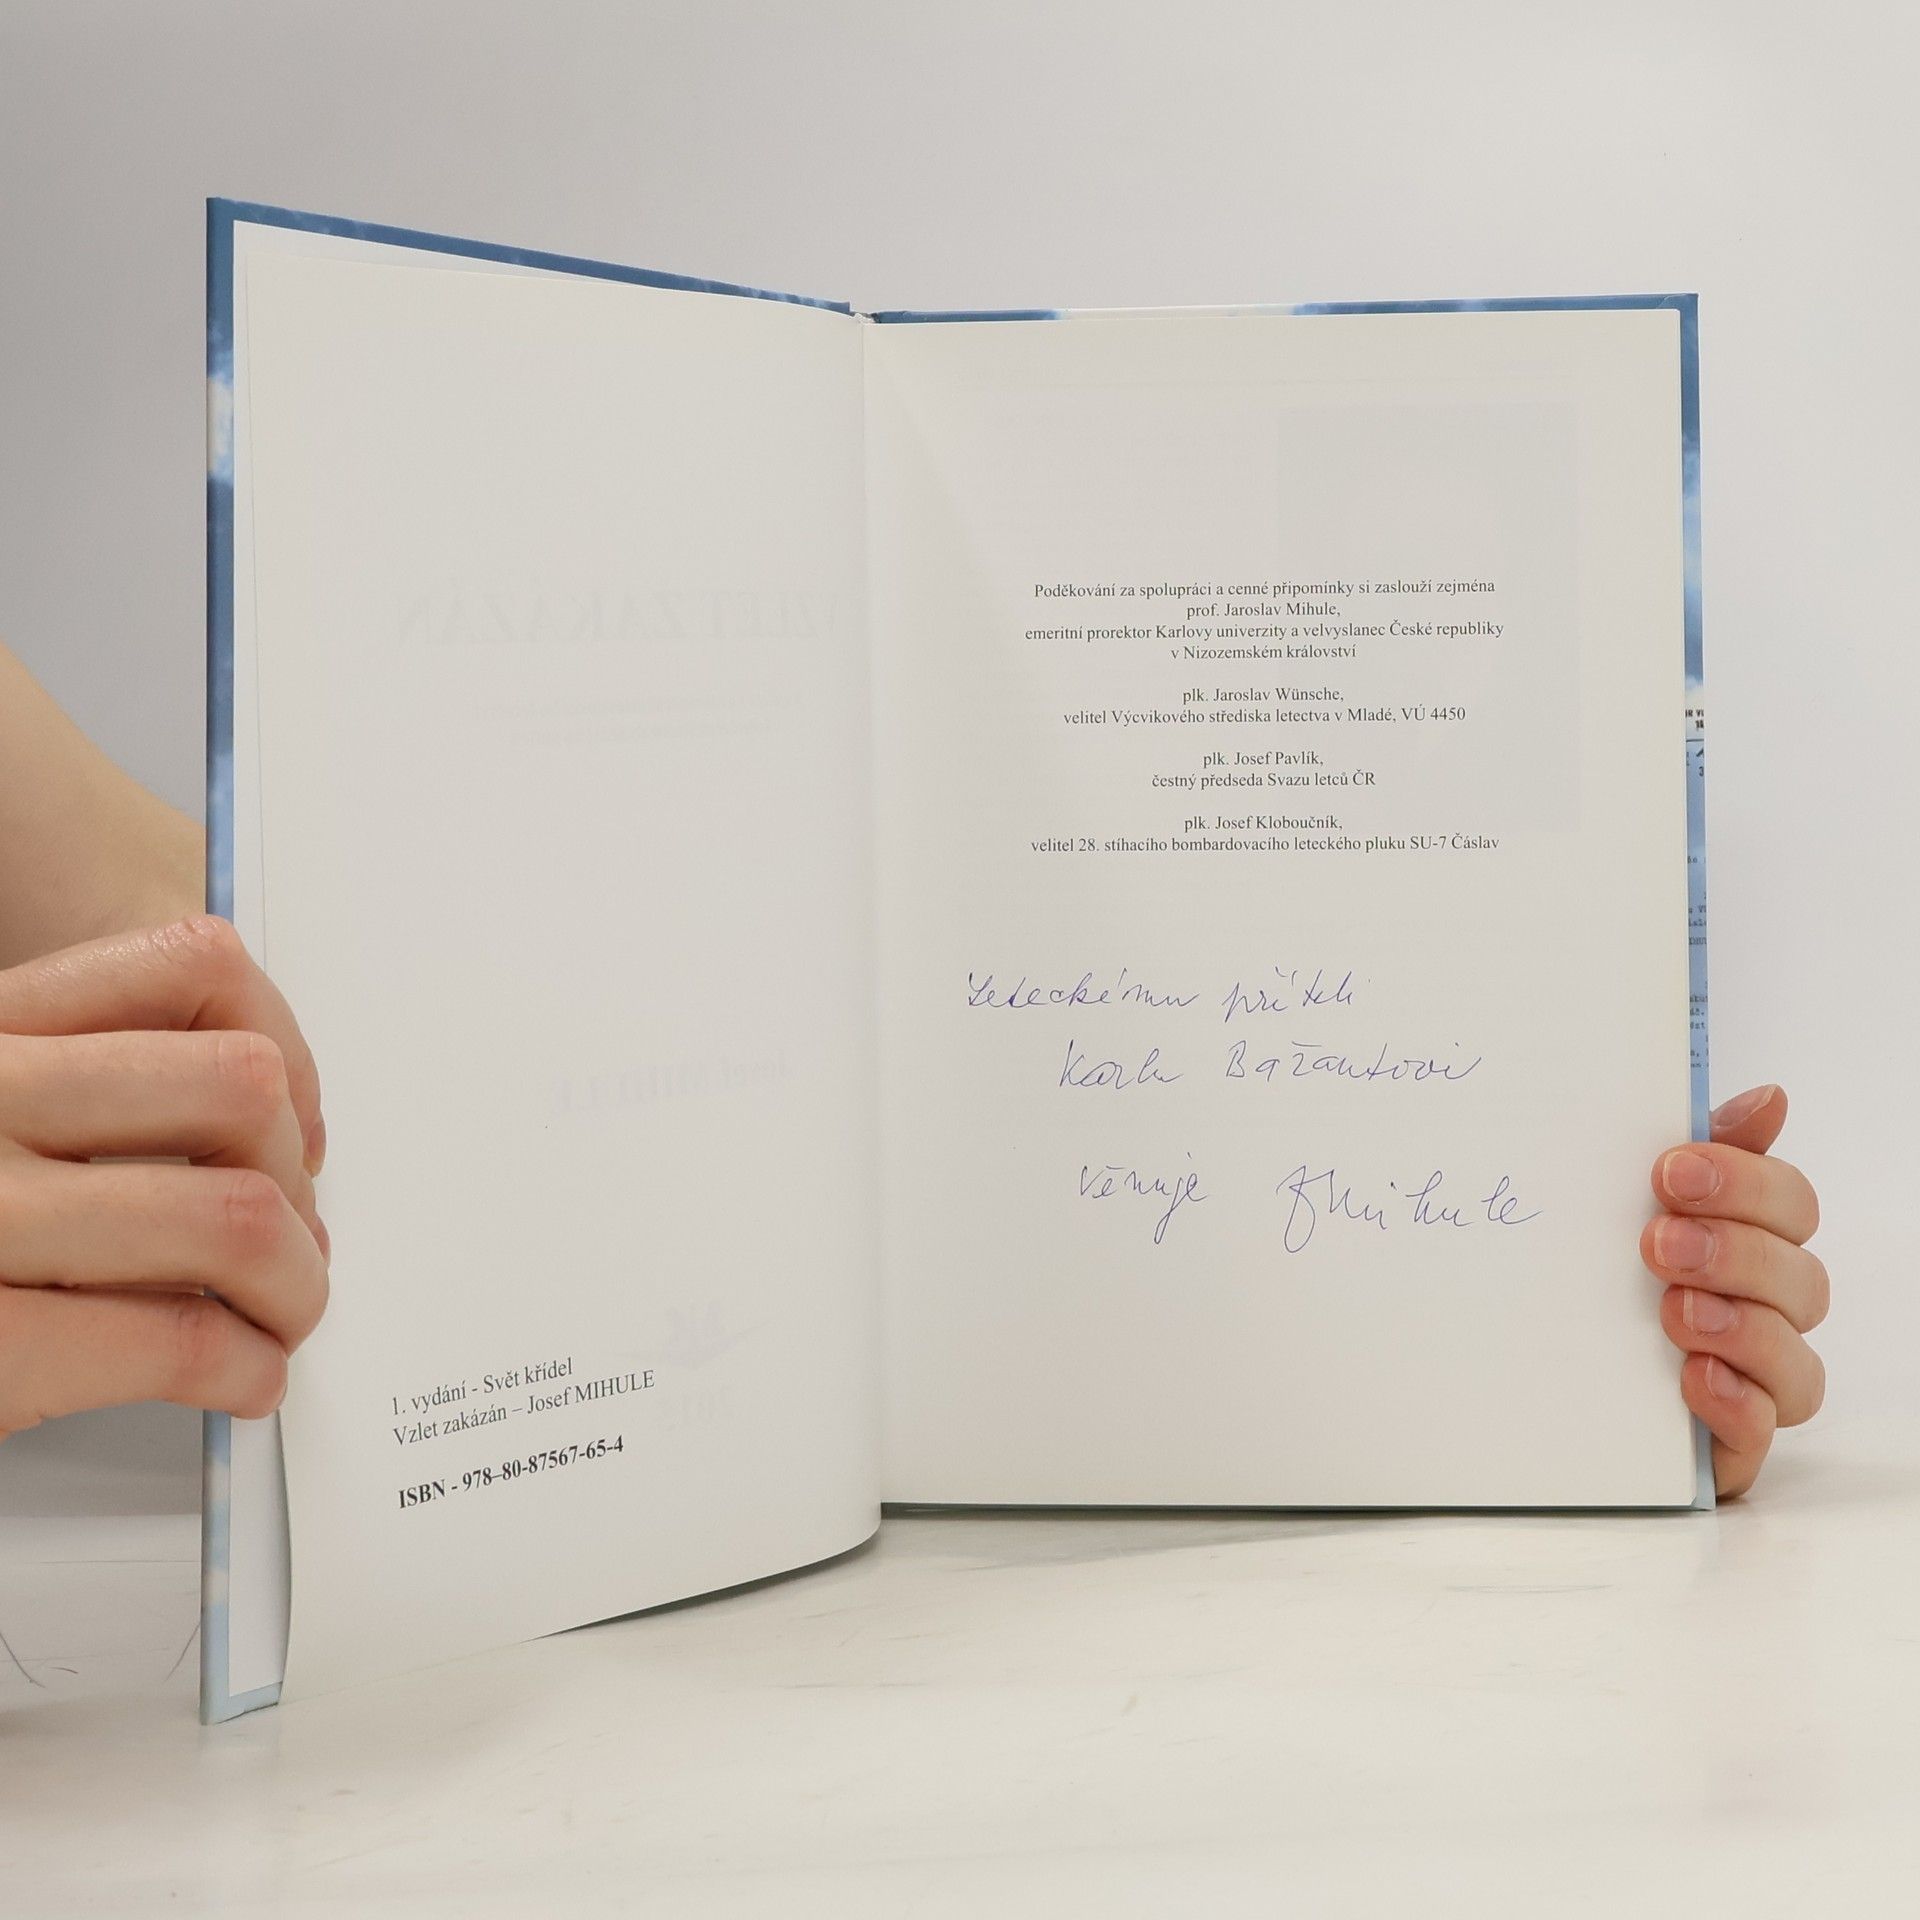 1. vydání - Svět křídel
Vzlet zakázán – Josef MIHULE
ISBN - 978–80-87567-65-4
Poděkování za spolupráci a cenné připomínky si zaslouží zejména
prof. Jaroslav Mihule,
emeritní prorektor Karlovy univerzity a velvyslanec České republiky
v Nizozemském království
plk. Jaroslav Wünsche,
velitel Výcvikového střediska letectva v Mladé, VÚ 4450
plk. Josef Pavlík,
čestný předseda Svazu letců ČR
plk. Josef Kloboučník,
velitel 28. stíhacího bombardovacího leteckého pluku SU-7 Čáslav
Leteckému příteli
Karlu Bažantovi
věnuje JMihule